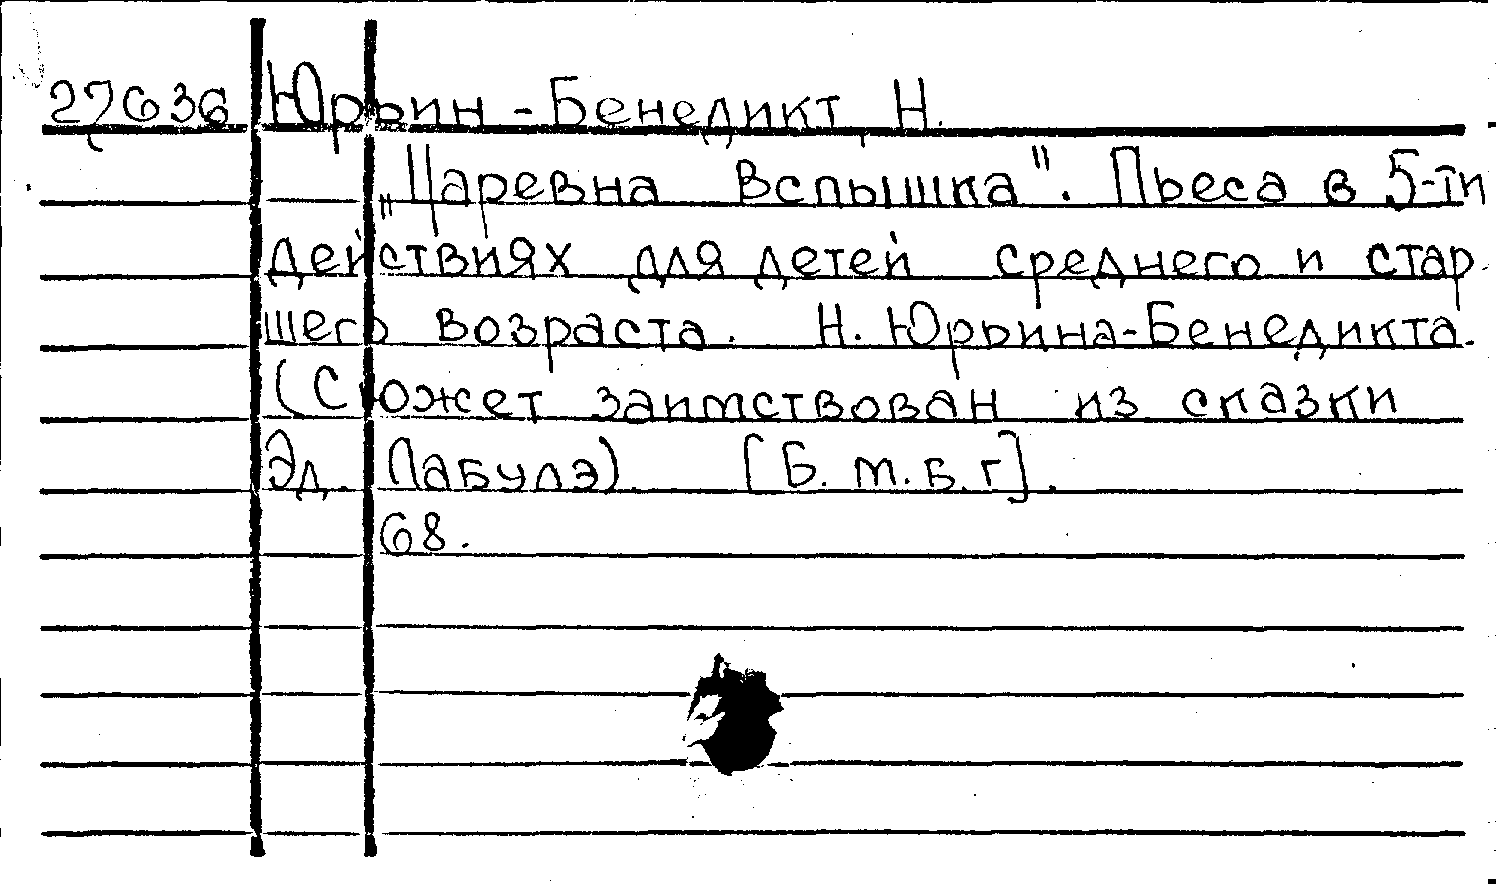 27636 Юрьин-Бенедикт Н.
„Царевна Вспышка". Пьеса в 5-ти
действиях для детей среднего и стар-
шего возраста. Н. Юрьина-Бенедикта.
(Сюжет заимствован из сказки
Эд. Лабулэ). [Б. м. Б. г].
68.